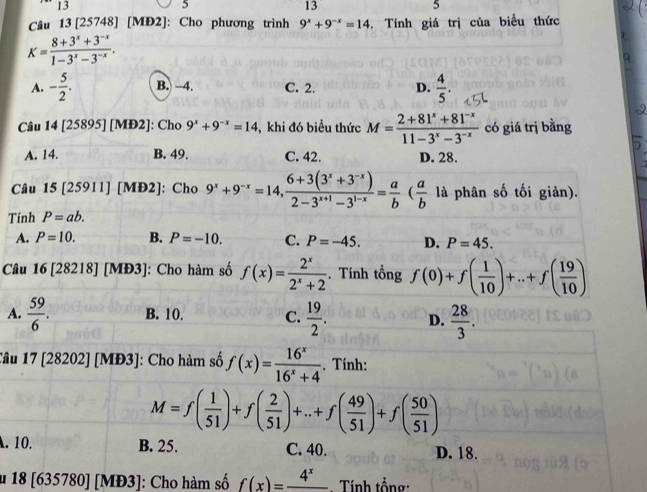 13 5 13 5
Câu 13 [25748] [MĐ2]: Cho phương trình 9^x + 9^{-x} = 14. Tính giá trị của biểu thức
K = \frac{8+3^x+3^{-x}}{1-3^x-3^{-x}}.
A. -\frac{5}{2}. B. -4. C. 2. D. \frac{4}{5}.
Câu 14 [25895] [MĐ2]: Cho 9^x + 9^{-x} = 14, khi đó biểu thức M = \frac{2+81^x+81^{-x}}{11-3^x-3^{-x}} có giá trị bằng
A. 14. B. 49. C. 42. D. 28.
Câu 15 [25911] [MĐ2]: Cho 9^x + 9^{-x} = 14, \frac{6+3(3^x+3^{-x})}{2-3^{x+1}-3^{1-x}} = \frac{a}{b} (\frac{a}{b} là phân số tối giản).
Tính P = ab.
A. P = 10. B. P = -10. C. P = -45. D. P = 45.
Câu 16 [28218] [MĐ3]: Cho hàm số f(x) = \frac{2^x}{2^x+2}. Tính tổng f(0) + f(\frac{1}{10}) + .. + f(\frac{19}{10})
A. \frac{59}{6}. B. 10. C. \frac{19}{2}. D. \frac{28}{3}.
Câu 17 [28202] [MĐ3]: Cho hàm số f(x) = \frac{16^x}{16^x+4}. Tính:
M = f(\frac{1}{51}) + f(\frac{2}{51}) + .. + f(\frac{49}{51}) + f(\frac{50}{51})
A. 10. B. 25. C. 40. D. 18.
u 18 [635780] [MĐ3]: Cho hàm số f(x) = 4^x . Tính tổng: